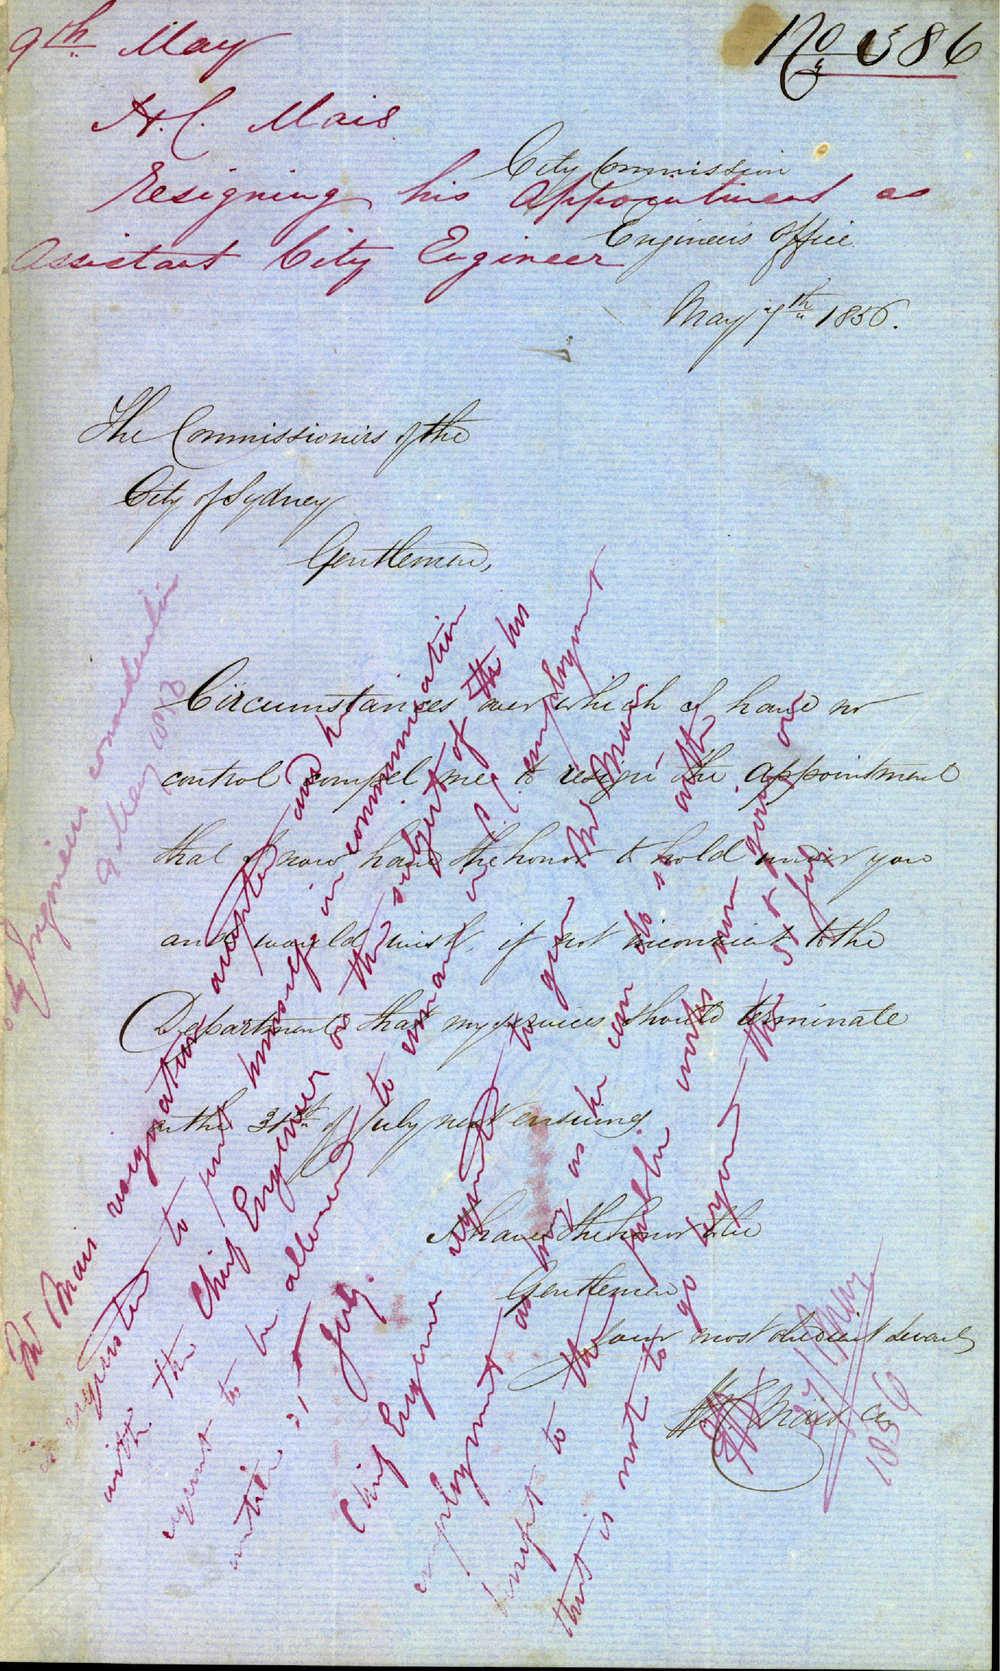 9th May
No 586
H. C. Mais
Resigning his appointment as
Assistant City Engineer
City Commission
Engineers Office
May 7th 1856.
The Commissioners of the
City of Sydney
Gentlemen,
Circumstances over which I have no
control compel me to resign the appointment
that I now have the honor to hold under you
and would wish, if not inconvenient to the
Department that my services should terminate
on the 31st of July next ensuing
I have the honor to be
Gentlemen
Your most obedient Servant
H C Mais
City Engineers consideration
9 May
Mr Mais resignation accepted and he
is requested to put himself in communication
with the Chief Engineer on the subject of his
request to be allowed to remain in employment
until 31st July.
Chief Engineer requested to give Mr Mais
employment as long as he can do so with
benefit to the public works now going on
that is not to go beyond the 31st July
1856